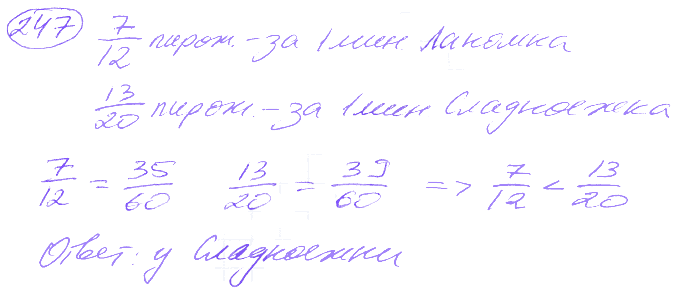 247 7/12 пирож. - за 1 мин Лакомка
13/20 пирож. - за 1 мин Сладкоежка
7/12 = 35/60 13/20 = 39/60 => 7/12 < 13/20
Ответ: у Сладкоежки